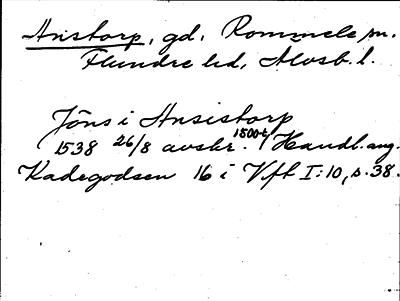 Anstorp, gd, Rommele sn.
Flundre hd, Älvsb. l.
Jöns i Ansistorp
1538 26/8 avskr. 1500-t Handl. ang.
Kadegodsen 16 i Vfh I:10, s. 38.